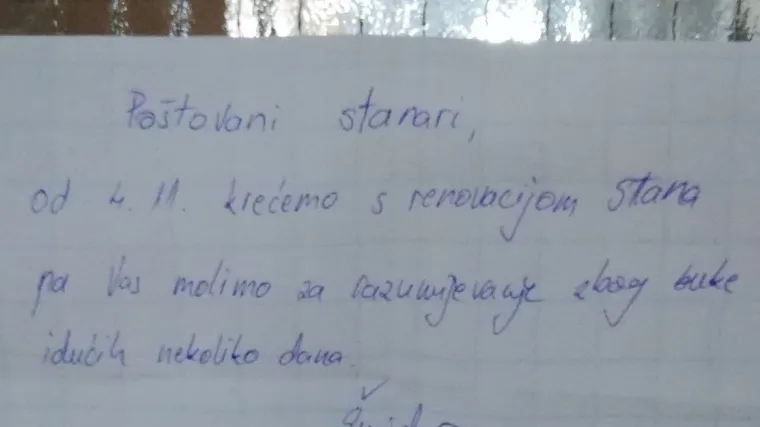 Poštovani stanari,
od 4. 11. krećemo s renovacijom stana
pa Vas molimo za razumijevanje zbog buke
idućih nekoliko dana.